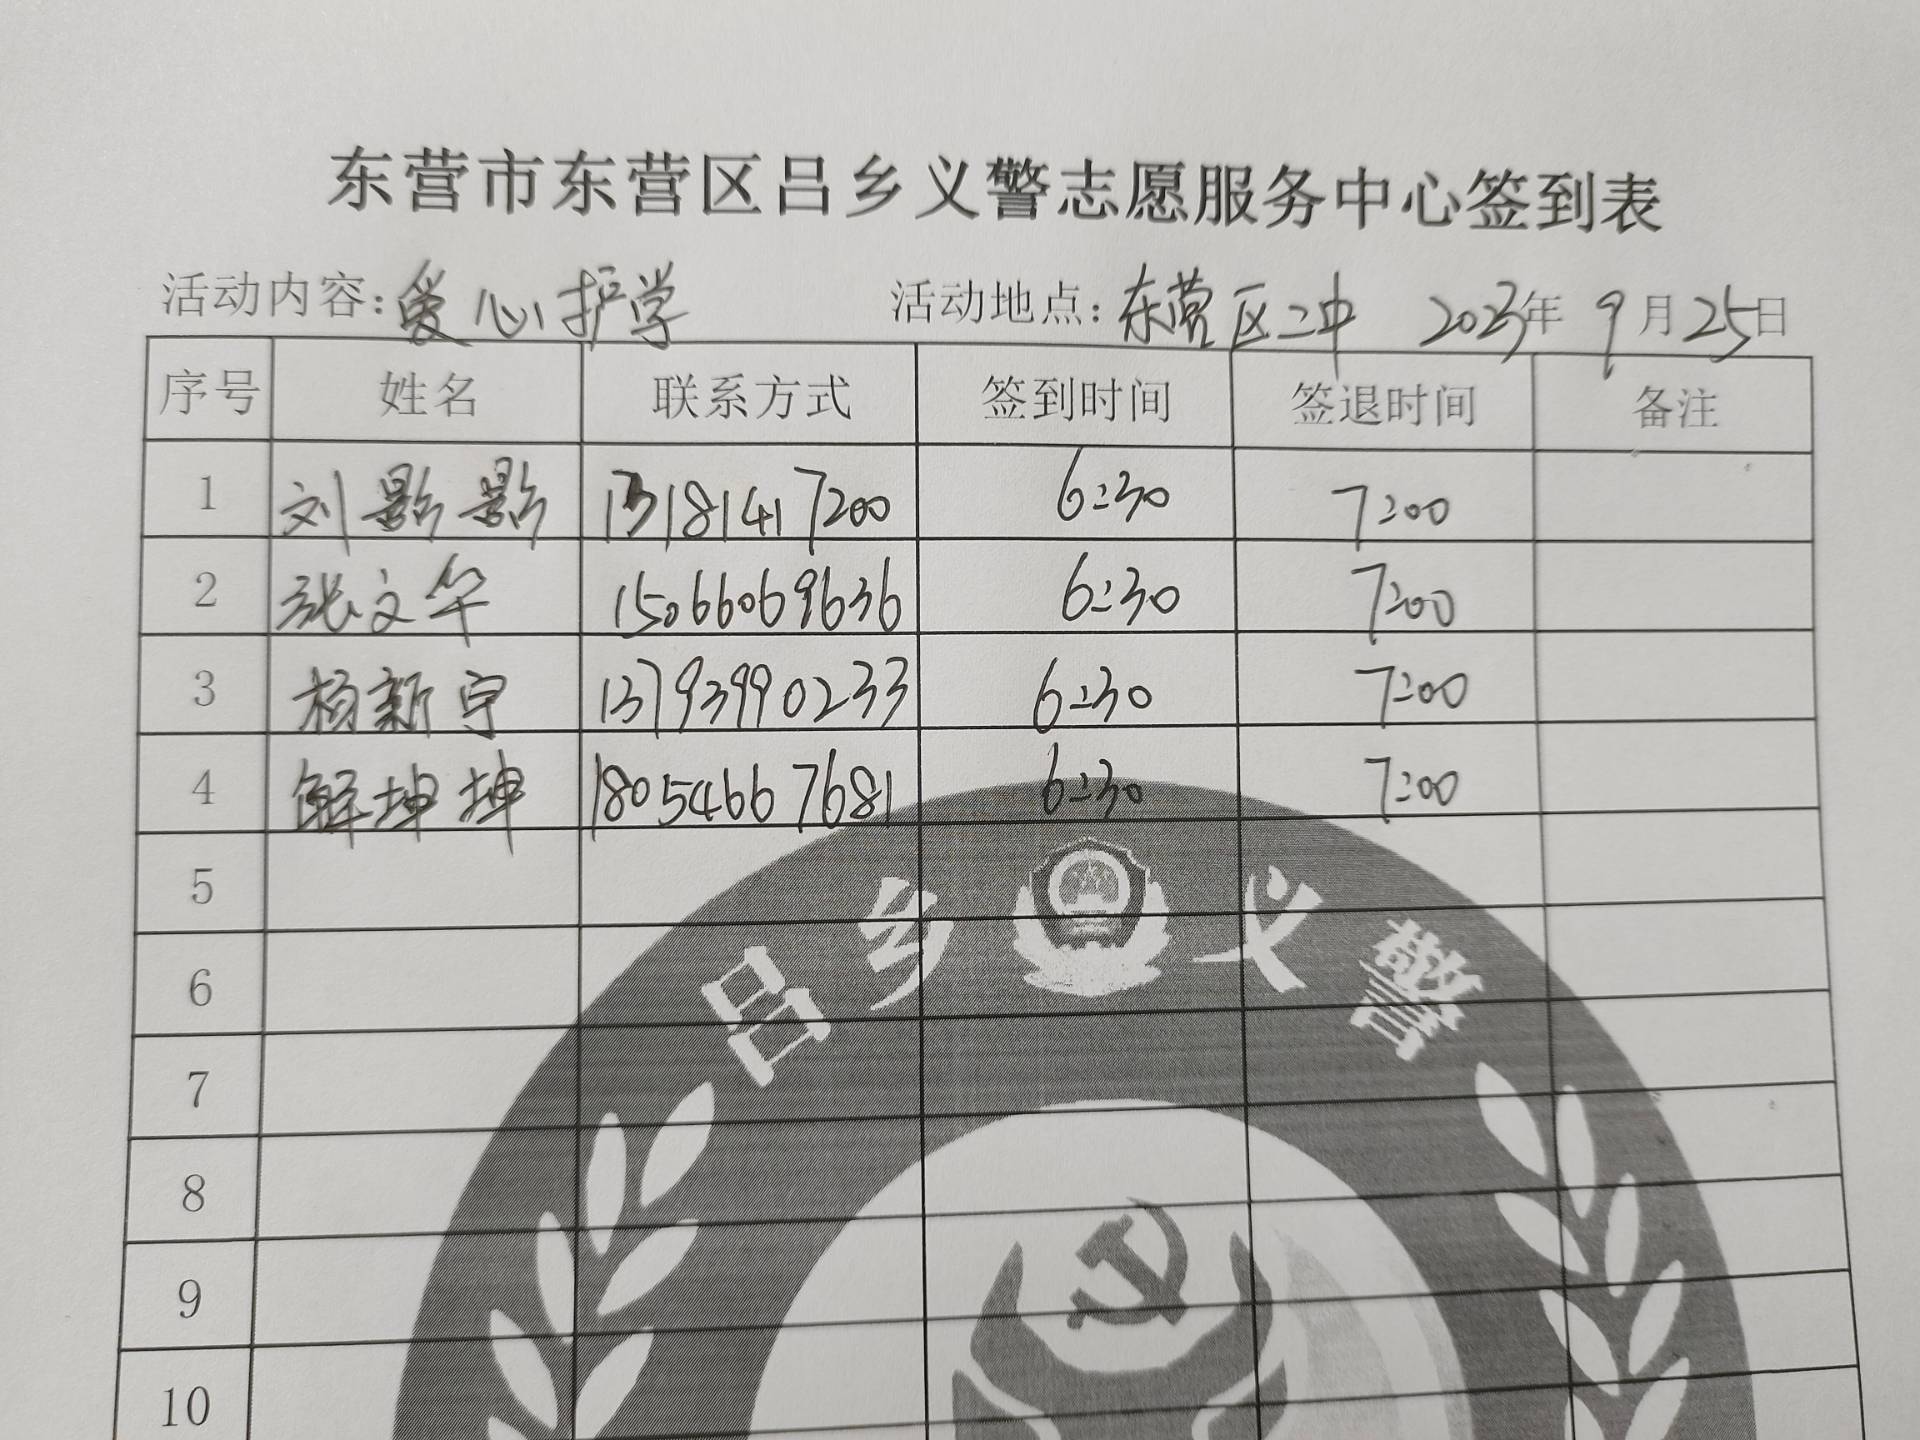 东营市东营区吕乡义警志愿服务中心签到表
活动内容：爱心护学 活动地点：东营区二中 2023年9月25日
序号 姓名 联系方式 签到时间 签退时间 备注
1 刘影影 13181417200 6:30 7:00
2 张文华 15066069636 6:30 7:00
3 杨新宇 13793990233 6:30 7:00
4 解坤坤 18054667681 6:30 7:00
5
吕乡义警
6
7
8
9
10